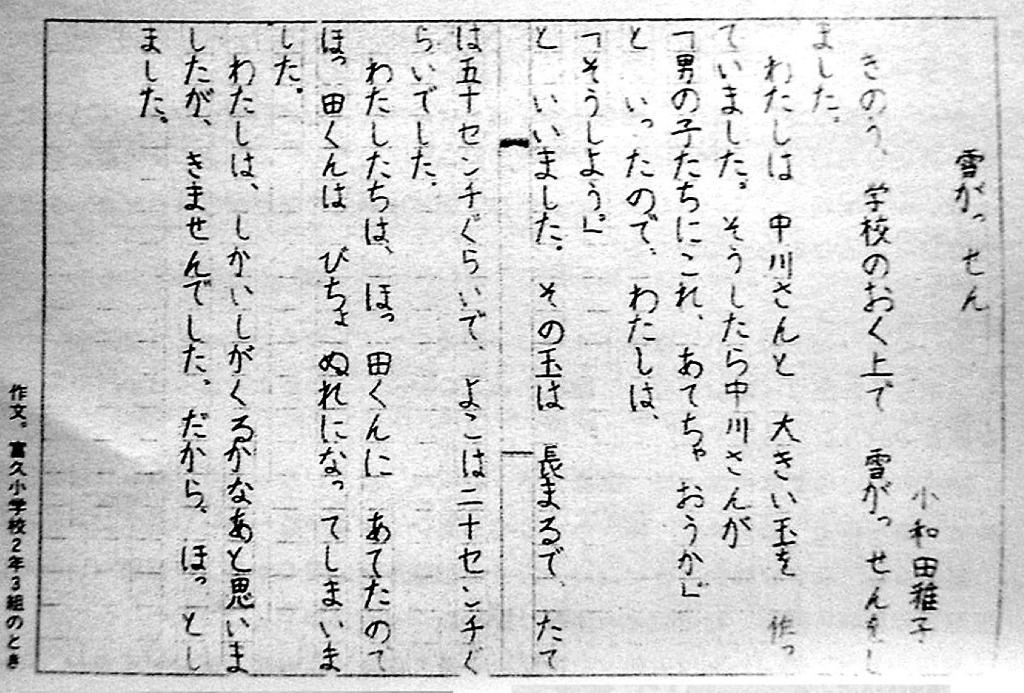 雪がっせん
小和田雅子
きのう、学校のおく上で 雪がっせんをし
ました。
わたしは 中川さんと 大きい玉を 作っ
ていました。そうしたら中川さんが
「男の子たちにこれ、あてちゃおうか」
と いったので、わたしは、
「そうしよう。」
と いいました。その玉は 長まるで、たて
は五十センチぐらいで、よこは二十センチぐ
らいでした。
わたしたちは、ほっ田くんに あてたので
ほっ田くんは びちょぬれになってしまいま
した。
わたしは、しかいしがくるかなあと思いま
したが、きませんでした。だから、ほっとし
ました。
作文。富久小学校2年3組のとき